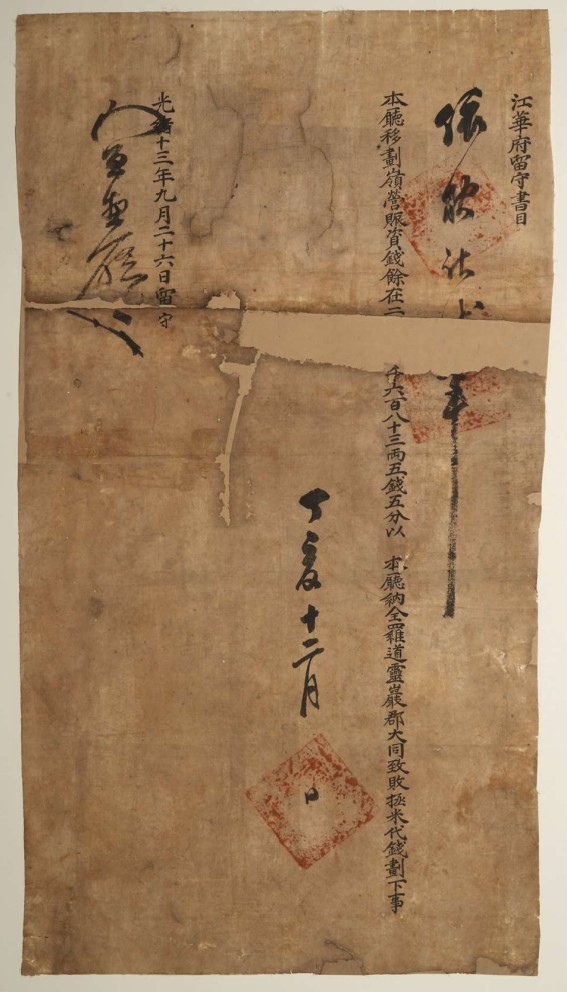 江華府留守書目
依
本廳移劃嶺營賑資錢餘在二千六百八十三兩五錢五分以 本廳納全羅道靈巖郡大同致敗拯米代錢劃下事
丁亥十二月 日
光緒十三年九月二十六日留守